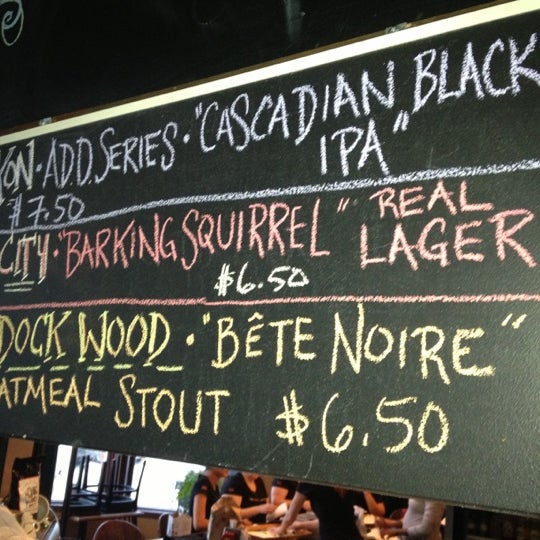 YON • A.D.D. SERIES • "CASCADIAN BLACK
IPA"
$7.50
CITY • "BARKING SQUIRREL" REAL
LAGER
$6.50
DOCK WOOD • "BÊTE NOIRE"
ATMEAL STOUT $6.50